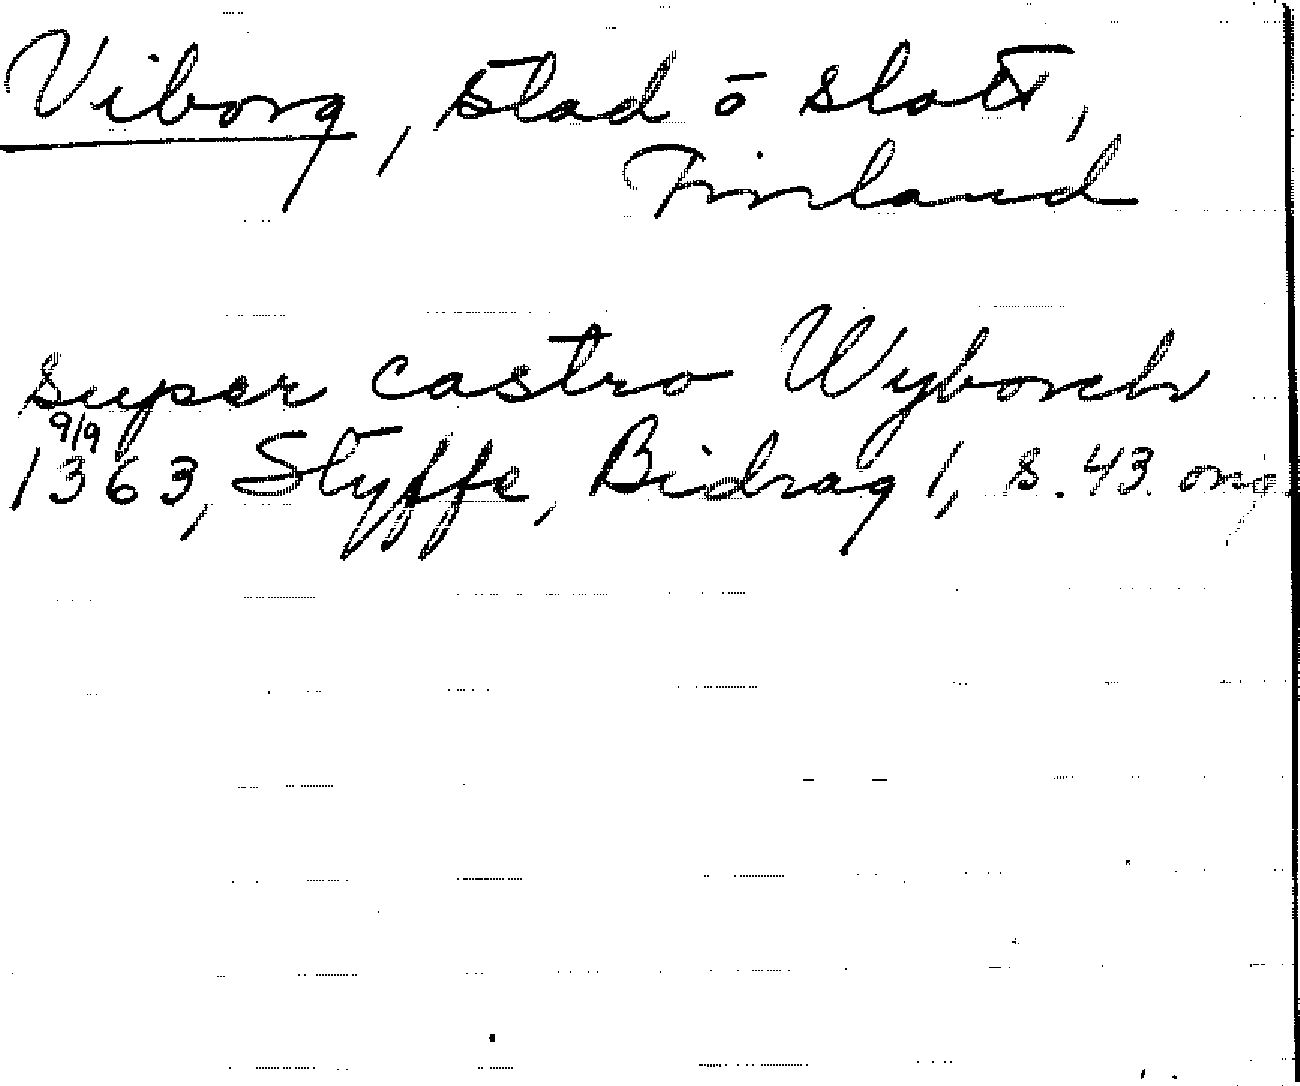 Viborg, stad o slott,
Finland
super castro Wyborch
9/9
1363, Styffe, Bidrag 1, s. 43 orig